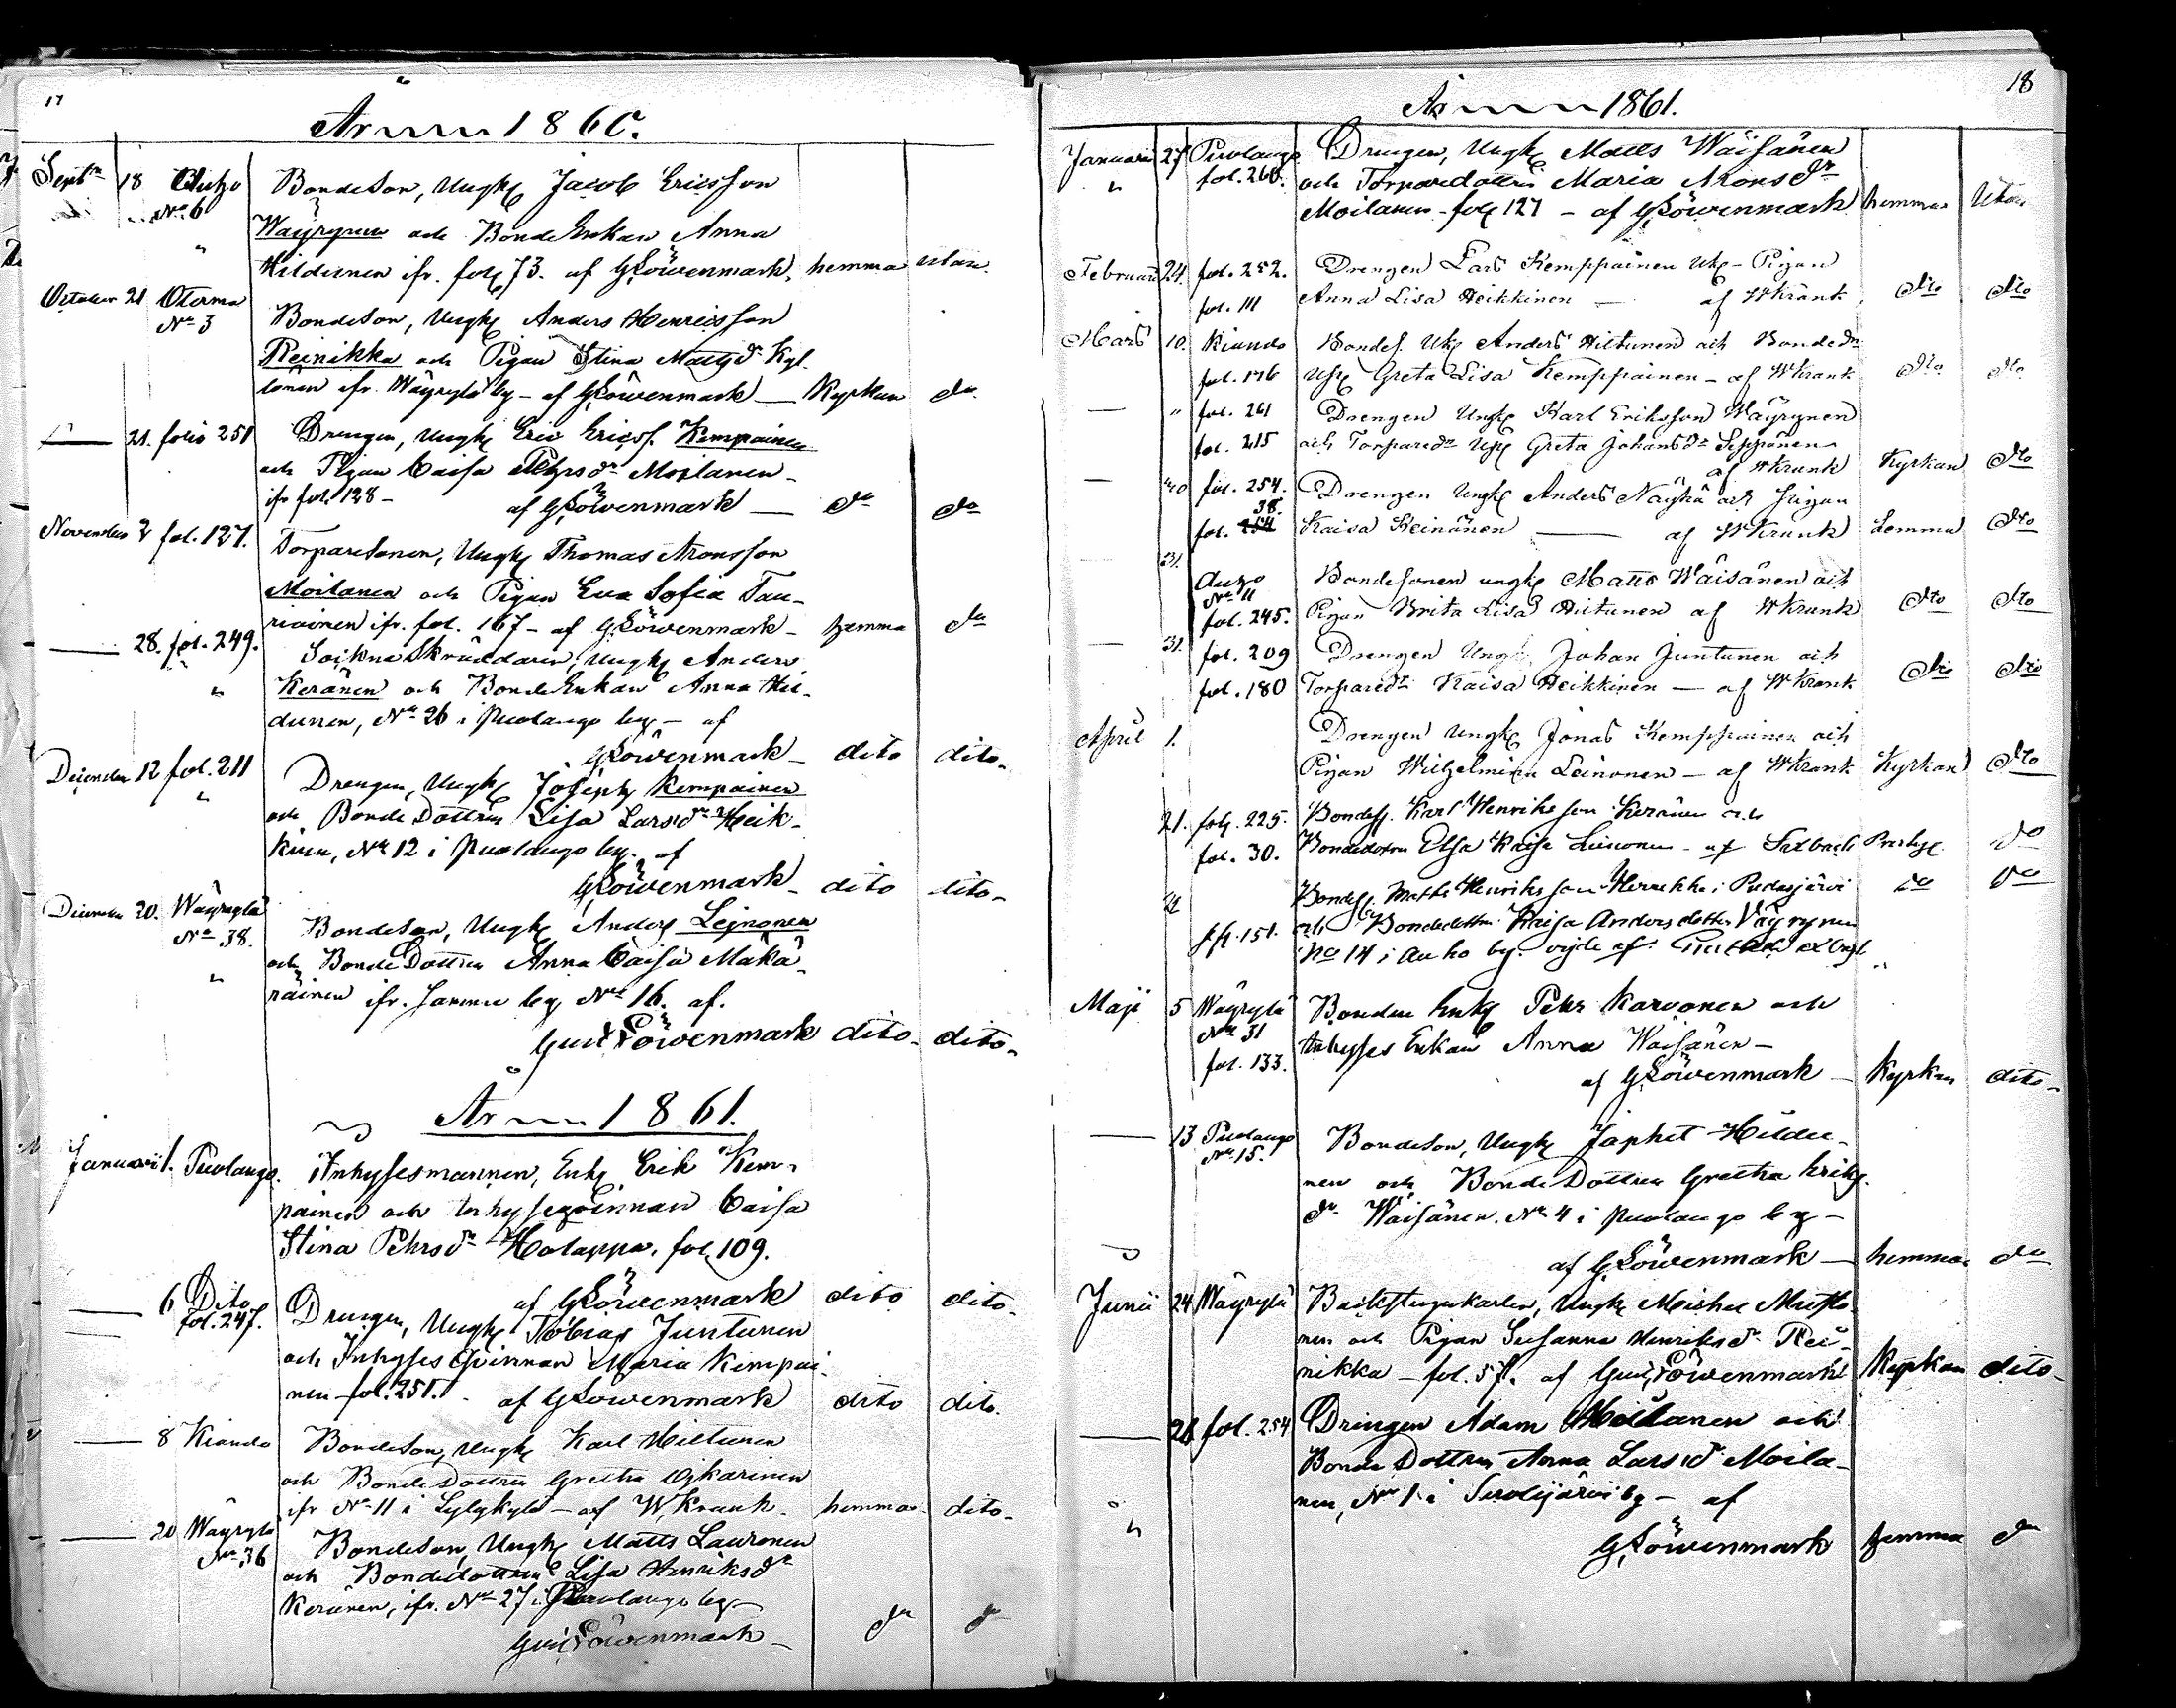 17
År 1860.
Septbr 18 Auho Bondeson, Ungk Jacob Ericsson
No 6
Wäyrynen och Bonde Enkan Anna
Hildunen ifr. fol 73. af GLöwenmark, hemma utan.
October 21 Oterma Bondeson, Ungk Anders Henricsson
No 3
Reinikka och Pigan Stina Mattsdr Kyl-
lönen ifr. Wäyrylä by - af GLöwenmark — Kyrkan do
— 21. folio 251 Drengen, Ungk Eric Ericss. Kempainen
och Pigan Caisa Pehrsdr Moilanen -
ifr fol. 128 - af GLöwenmark — do do
November 2 fol. 127. Torparesonen, Ungk Thomas Aronsson
Moilanen och Pigan Eva Sofia Tau-
riainen ifr. fol. 167 - af GLöwenmark - hemma do
— 28. fol. 249. Sockne Skräddaren, Ungk Anders
Keränen och Bonde Enkan Anna Hil-
dunen, No 26 i Puolango by - af
GLöwenmark - dito dito.
December 12 fol. 211 Drengen, Ungk Joseph Kempainen
och Bonde Dottren Lisa Larsdr Heik-
kinen, No 12 i Puolango by. af
GLöwenmark - dito dito-
December 20. Wäyrylä Bondeson, Ungk Anders Lejnonen
No 38.
och Bonde Dottren Anna Caisa Mäkä-
räinen ifr. samme by No 16. af.
Gust Löwenmark dito- dito-
År 1861.
Januari 1. Puolango. Inhysesmannen, Enkl Erik Kem-
painen och Inhysesqvinnan Caisa
Stina Pehrsdr Holappa, fol 109.
af GLöwenmark dito dito-
— 6 Dito Drengen, Ungk Tobias Juntunen
fol. 247.
och Inhyses Qvinnan Maria Kempai-
nen - fol. 251. - af GLöwenmark dito dito.
— 8 Kiando Bondeson, Ungk Karl Hiltunen
och Bonde Dottren Gretha Ojkarinen
ifr No 11 i Lylykylä - af W. Krank - hemma dito-
— 20 Wäyrylä Bondeson Ungk Matts Lauronen
No 36
och Bondedottren Lisa Henriksdr
Keränen, ifr. No 27 i Puolango by -
Gust Löwenmark - do do
18
År 1861.
Januari 27 Puolango Drengen, Ungk Matts Wäisänen
fol. 260. och Torparedottren Maria Aronsdr
Moilanen - fol 127 - af GLöwenmark hemma utan
Februari 24. fol. 252. Drengen Lars Kemppainen Uk - Pigan
fol. 111 Anna Lisa Heikkinen — af WKrank dito dito
Mars 10. Kiando Bondes. Uk Anders Hiltunen och Bondedr
fol. 176 Greta Lisa Kemppainen - af WKrank dito dito
— " fol. 261 Drengen Ungk Karl Eriksson Wäyrynen
fol. 215 och Torparedr Greta Johansdr Seppänen
af WKrank Kyrkan dito
— fol. 254. Drengen Ungk Anders Näykä och Pigan
38.
fol. Kaisa Keinänen — af WKrank hemma dito
31. Auho Bondesonen ungk Matts Wäisänen och
No 11
fol. 245. Pigan Brita Lisa Hiltunen af WKrank dito dito
— 31. fol. 209 Drengen Ungk Johan Juntunen och
fol. 180 Torparedr Kaisa Heikkinen — af WKrank dito dito
April 1. Drengen Ungk Jonas Kemppainen och
Pigan Wilhelmina Leinonen — af WKrank Kyrkan dito
21. fol. 225. Bondes. Karl Henriksson Keränen och
fol. 30. Bondedottren Elsa Kaisa Leinonen - af do
21 Bondes. Matts Henriksson Herrekka i Pudasjärvi do do
f. 151. och Bondedottren Kaisa Andersdotter Väyrynen
No 14 i Auho by. vigde af
Maji 5 Wäyrylä Bonden Enkl Pehr Karvonen och
No 31
fol. 133. Inhyses Enkan Anna Wäisänen -
af GLöwenmark - Kyrkan dito-
— 13 Puolango Bondeson, Ungk Japhet Hildu-
No 15.
nen och Bonde Dottren Gretha Eriks-
dr Wäisänen. No 4 i Puolango by -
af GLöwenmark — hemma do
Junii 24 Wäyrylä Backstugukarlen, Ungk Michel Musto-
nen och Pigan Susanna Henriksdr Rei-
nikka - fol. 57. af Gust Löwenmark Kyrkan dito-
— 28 fol. 254 Drengen Adam Moilanen och
Bonde Dottren Anna Larsdr Moila-
nen, No 1 i Suolijärvi by - af
GLöwenmark hemma do